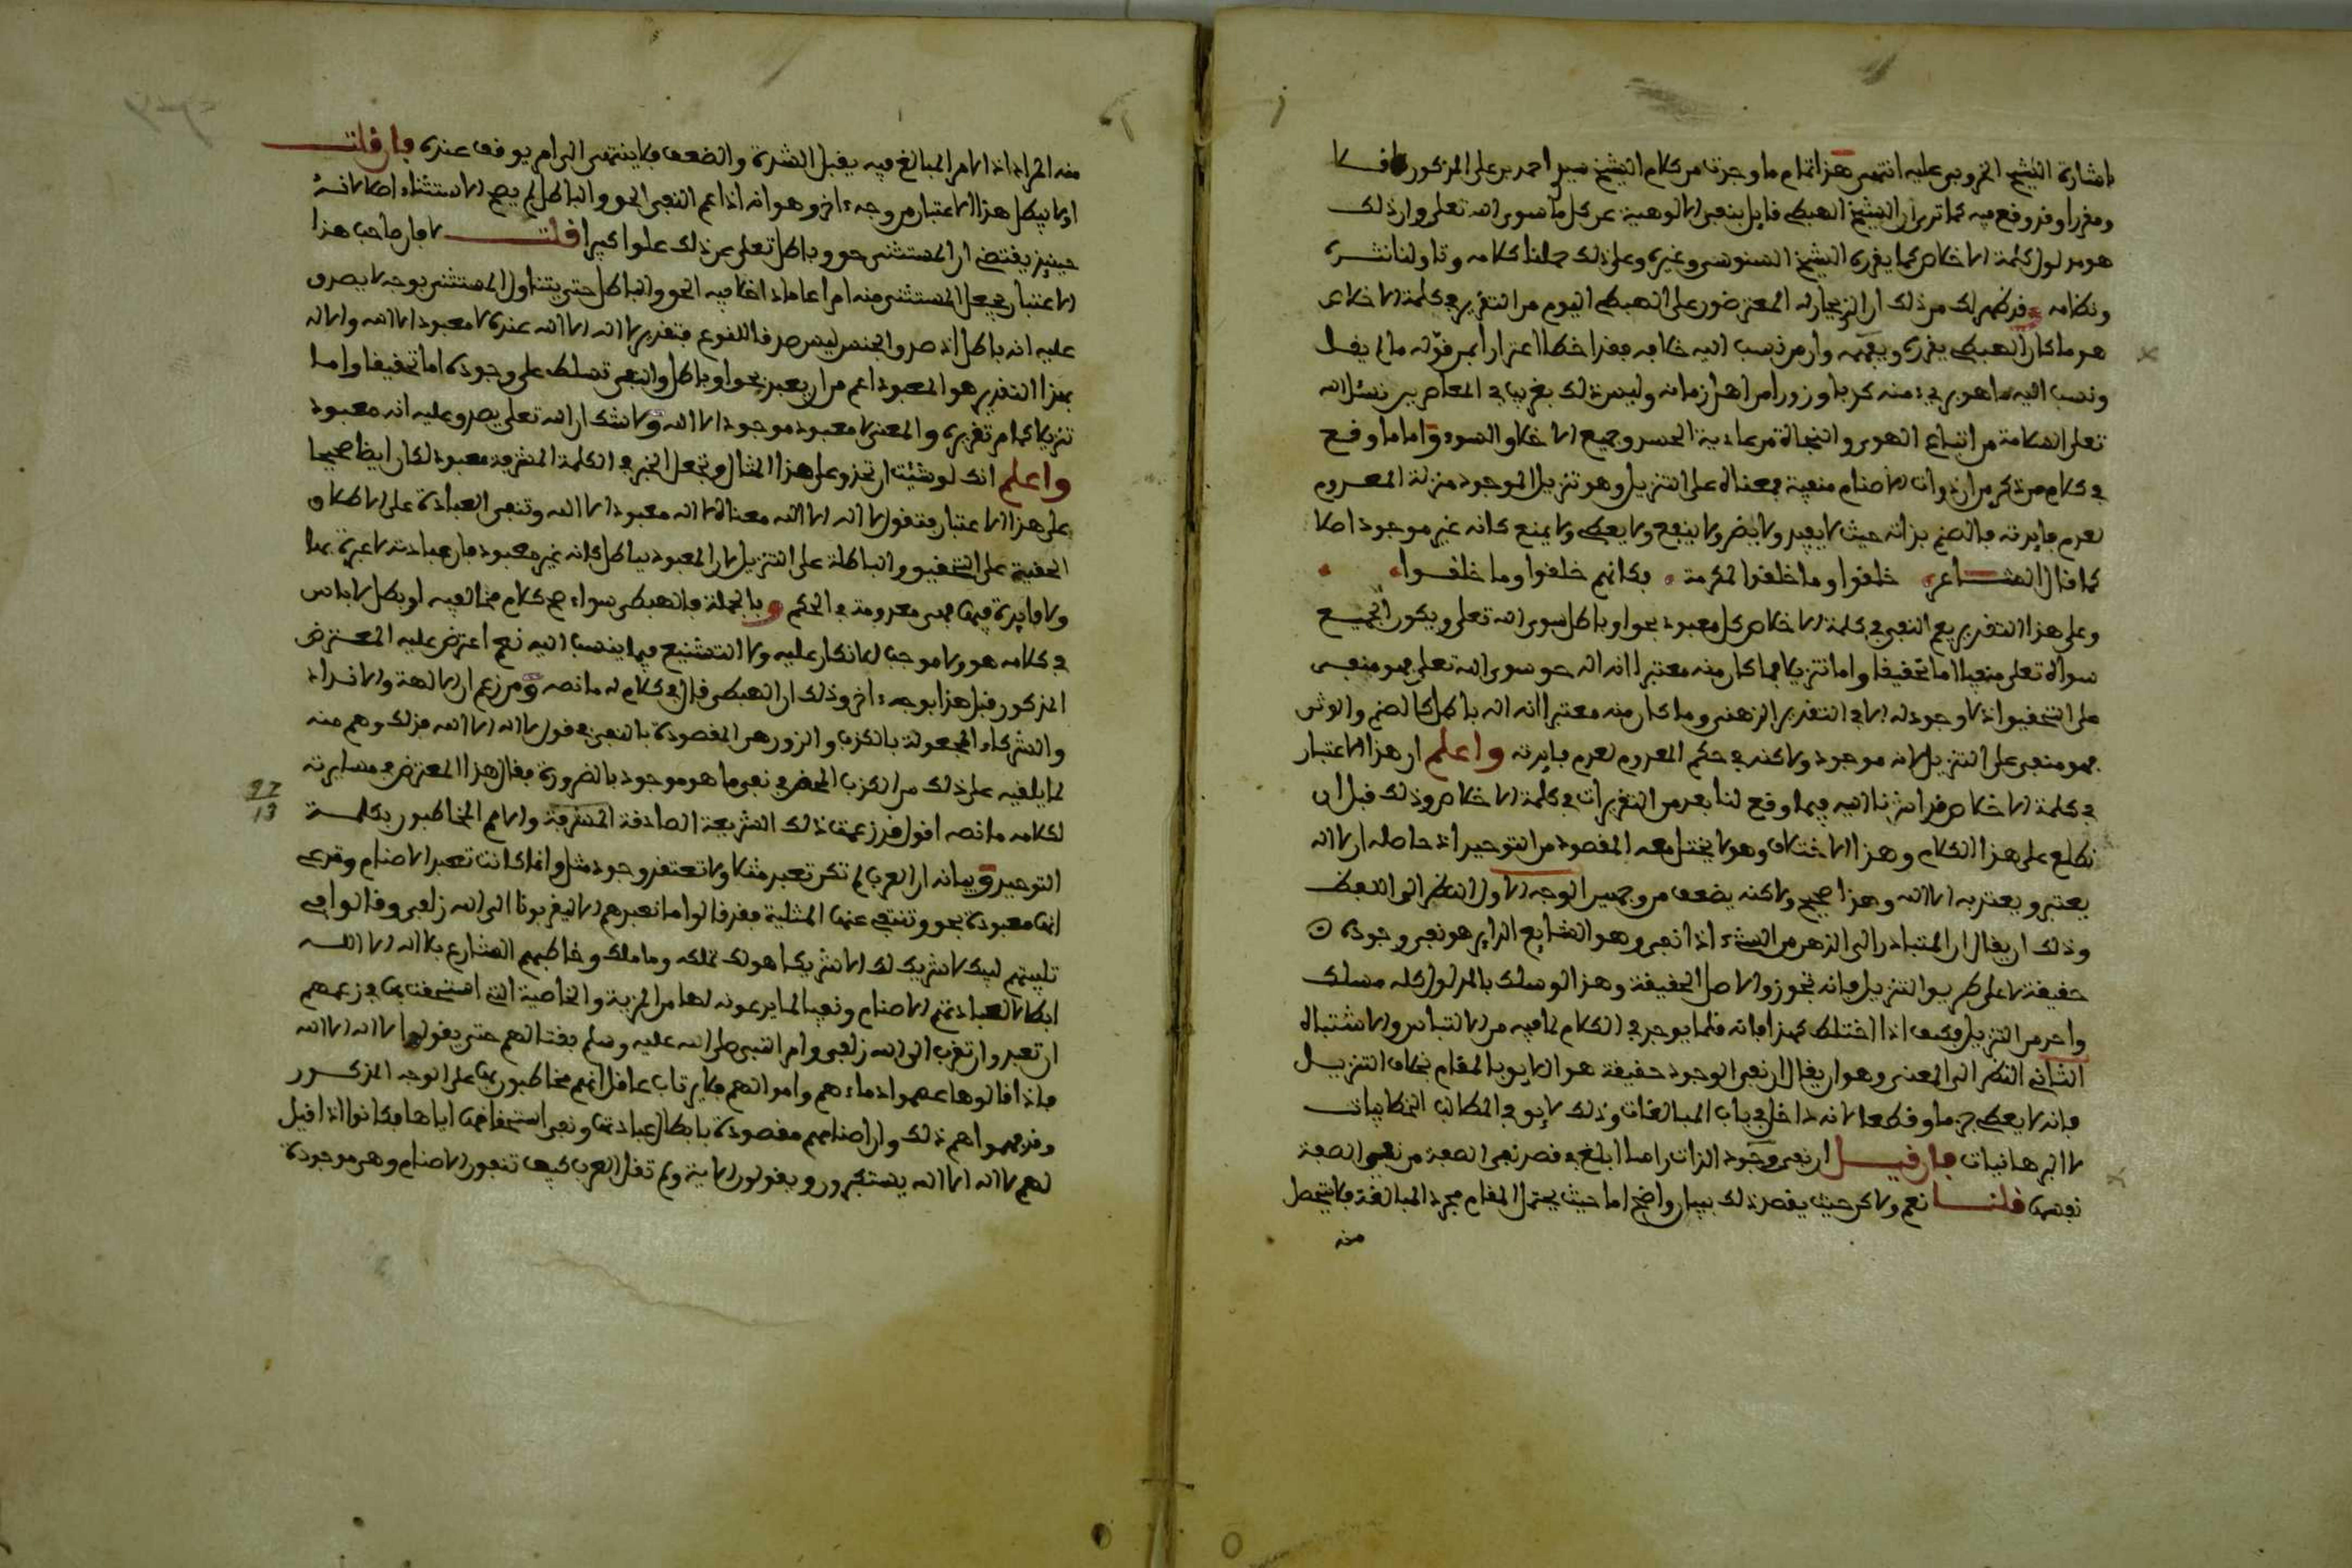 باشارة الشيخ الخروبي عليه انتهى هذا تمام ما وجدنا من كلام الشيخ سيدي احمد بن علي المذكور
ومقررا وقد وقع فيه كما ترى ان الشيخ الهبطي قايل بنفي الالوهية عن كل ما سوى الله تعلى وان ذلك
هو مدلول كلمة الاخلاص كما يقرره الشيخ السنوسي وغيره وعلى ذلك حملنا كلامه وتاولنا نثره
ونظامه فظهر لك من ذلك ان الذي عارف المعترضون على الهبطي اليوم من التقرير في كلمة الاخلاص
هو ما كان الهبطي يقرره ويفهمه وان من نسب اليه خلافه فقد اخطا اعتذارا بمر قوله ما لم يقل
ونسب اليه ما هو بريء منه كذبا وزورا من اهل زمانه وليس ذلك بغريب في المعاصرين نسئل الله
تعلى السلامة من اتباع الهوى والنجاة من عادية الحسد وجميع الاخلاق السوء واما ما وقع
في كلام من ذكر من ان ذوات الاصنام منفية فمعناه على التنزيل وهو تنزيل الموجود منزلة المعدوم
لعدم فايدته فالصنم بذاته حيث لا يفيد ولا يضر ولا ينفع ولا يعطي ولا يمنع كانه غير موجود اصلا
كما قال الشاعر خلقوا وما خلقوا لمكرمة فكانهم خلقوا وما خلقوا
وعلى هذا التقرير يعم النفي في كلمة الاخلاص كل معبود بحق او باطل سوى الله تعلى ويكون الجميع
سواه تعلى منفيا اما تحقيقا واما تنزيلا فما كان منه معتبرا انه اله حق سوى الله تعلى فهو منفي
على التحقيق اذ لا وجود له الا في التقدير الذهني وما كان منه معتبرا انه اله باطل كالصنم والوثن
فهو منفي على التنزيل لانه موجود ولاكنه في حكم المعدوم لعدم فايدته واعلم ان هذا الاعتبار
في كلمة الاخلاص قد اشرنا اليه فيما وقع لنا بعد من التقريرات في كلمة الاخلاص وذلك قبل ان
نطلع على هذا الكلام وهذا الاختلاف وهو لا يختل معه المقصود من التوحيد اذ حاصله ان لا اله
يعتبر ويعتد به الا الله وهذا صحيح ولاكنه يضعف من وجهين الوجه الاول النظر الى اللفظ
وذلك ان يقال ان المتبادر الى الذهن من الشيء اذا نفي وهو الشايع الذايع هو نفي وجوده
حقيقة لا على طريق التنزيل فانه تجوز والاصل الحقيقة وهذا لو سلك بالمدلول كله مسلك
واحد من التنزيل فكيف اذا اختلط كهذا فانه قلما يوجد في الكلام لما فيه من الالتباس والاشتباه
الثاني النظر الى المعنى وهو ان يقال ان نفي الوجود حقيقة هو الايق بالمقام بخلاف التنزيل
فانه لا يعطي جزما وقطعا لانه داخل في باب المبالغات وذلك لايق في المطالب الخطابيات
لا البرهانيات فان قيل ان نفي وجود الذات راسا ابلغ في قصد نفي الصفة من نفي الصفة
نفسها قلنا نعم ولاكن حيث يقصد ذلك ببيان واضح اما حيث يحتمل المقام مجرد المبالغة فلا يتحصل
منه
منه المراد اذ الامر المبالغ فيه يقبل الشدة والضعف فلا ينتهى الى امر يوقف عنده فان قلت
او لا يبطل هذا الاعتبار من وجه ءاخر وهو انه اذا عم النفي الحق والباطل لم يصح الاستثناء اصلا لانه
حينيذ يقتضي ان المستثنى حق وباطل تعلى عن ذلك علوا كبيرا قلت لا فان صاحب هذا
الاعتبار يجعل المستثنى منه امرا عاما داخلا فيه الحق والباطل حتى يتناول المستثنى بوجه لا يصدق
عليه انه باطل اذ صدق الجنس ليس صدقا للنوع فتقدير لا اله الا الله عنده لا معبود الا الله والاله
بهذا التقدير هو المعبود اعم من ان يعبد بحق او باطل والنفي تسلط على وجوده اما تحقيقا واما
تنزيلا كما مر تقريره والمعنى لا معبود موجود الا الله ولا شك ان الله تعلى يصدق عليه انه معبود
واعلم انك لو شئت ان تحذو على هذا المثال وتجعل الخبر في الكلمة المشرفة معبود لكان ايضا صحيحا
على هذا الاعتبار فتقول لا اله الا الله معناه لا اله معبود الا الله وتنفي العبادة على الاطلاق
الحقية على التحقيق والباطلة على التنزيل لان المعبود بباطل كانه غير معبود فان عبادته لا عبرة بها
ولا فايدة فيها فهي معدومة في الحكم وبالجملة فالهبطي سواء صح كلام مخالفيه او بطل لا باس
في كلامه هو ولا موجب للانكار عليه ولا التشنيع فيما ينسب اليه نعم اعترض عليه المعترض
المذكور قبل هذا بوجه ءاخر وذلك ان الهبطي قال في كلام له ما نصه ومن زعم ان الالهة والانداد
والشركاء المجعولة بالكذب والزور هي المقصودة بالنفي في قول لا اله الا الله فذلك وهم منه
لما يلفيه على ذلك من الكذب المحض في نفي ما هو موجود بالضرورة فقال هذا المعترض في مسايرته
لكلامه ما نصه اقول قد زعمت ذلك الشريعة الصادقة المشرفة والامم المخاطبون بكلمة
التوحيد وبيانه ان العرب لم تكن تعبد مثلا ولا تعتقد وجود مثل وانما كانت تعبد الاصنام وتدعي
انها معبودة بحق وتنتفي عنها المثلية فقد قالوا ما نعبدهم الا ليقربونا الى الله زلفى وقالوا في
تلبيتهم لبيك لا شريك لك الا شريكا هو لك تملكه وما ملك وخاطبهم الشارع بلا اله الا الله
ابطالا لعبادتهم الاصنام ونفيا لما يدعونه لها من المزية والخاصية التي استحقت بها في زعمهم
ان تعبد وان تقرب الى الله زلفى وامر النبي صلى الله عليه وسلم بقتالهم حتى يقولوا لا اله الا الله
فاذا قالوها عصموا دماءهم واموالهم فلا يرتاب عاقل انهم مخاطبون بها على الوجه المذكور
وقد فهموا هم ذلك وان اصنامهم مقصودة بابطال عبادتها ونفي استحقاقها اياها فكانوا اذا قيل
لهم لا اله الا الله يستكبرون ويقولون الاية ولم تقل العرب كيف تنفون الاصنام وهي موجودة